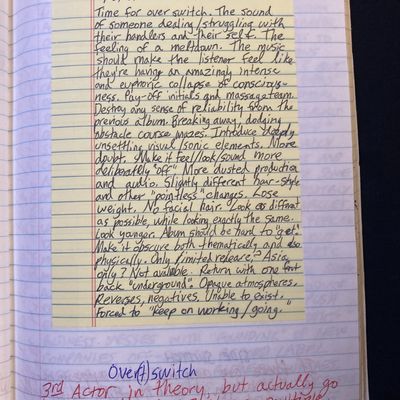 Time for over switch. The sound
of someone dealing/struggling with
their handlers and their self. The
feeling of a meltdown. The music
should make the listener feel like
they're having an amazingly intense
and euphoric collapse of conscious-
ness. Pay-off initials and massage team.
Destroy any sense of reliability from the
previous album. Breaking away, dodging
obstacle course mazes. Introduce deeply
unsettling visual/sonic elements. More
doubt. Make it feel/look/sound more
deliberately "off" More dusted production
and audio. Slightly different hair-style
and other "pointless" changes. Lose
weight. No facial hair. Look as different
as possible, while looking exactly the same.
Look younger. Album should be hard to "get."
Make it obscure both thematically and also
physically. Only limited release," Asia
only? Not available. Return with one foot
back "underground". Opaque atmospheres.
Reverses, negatives. Unable to exist.
Forced to "keep on working/going."
Over(t) switch
3rd Actor in theory, but actually go